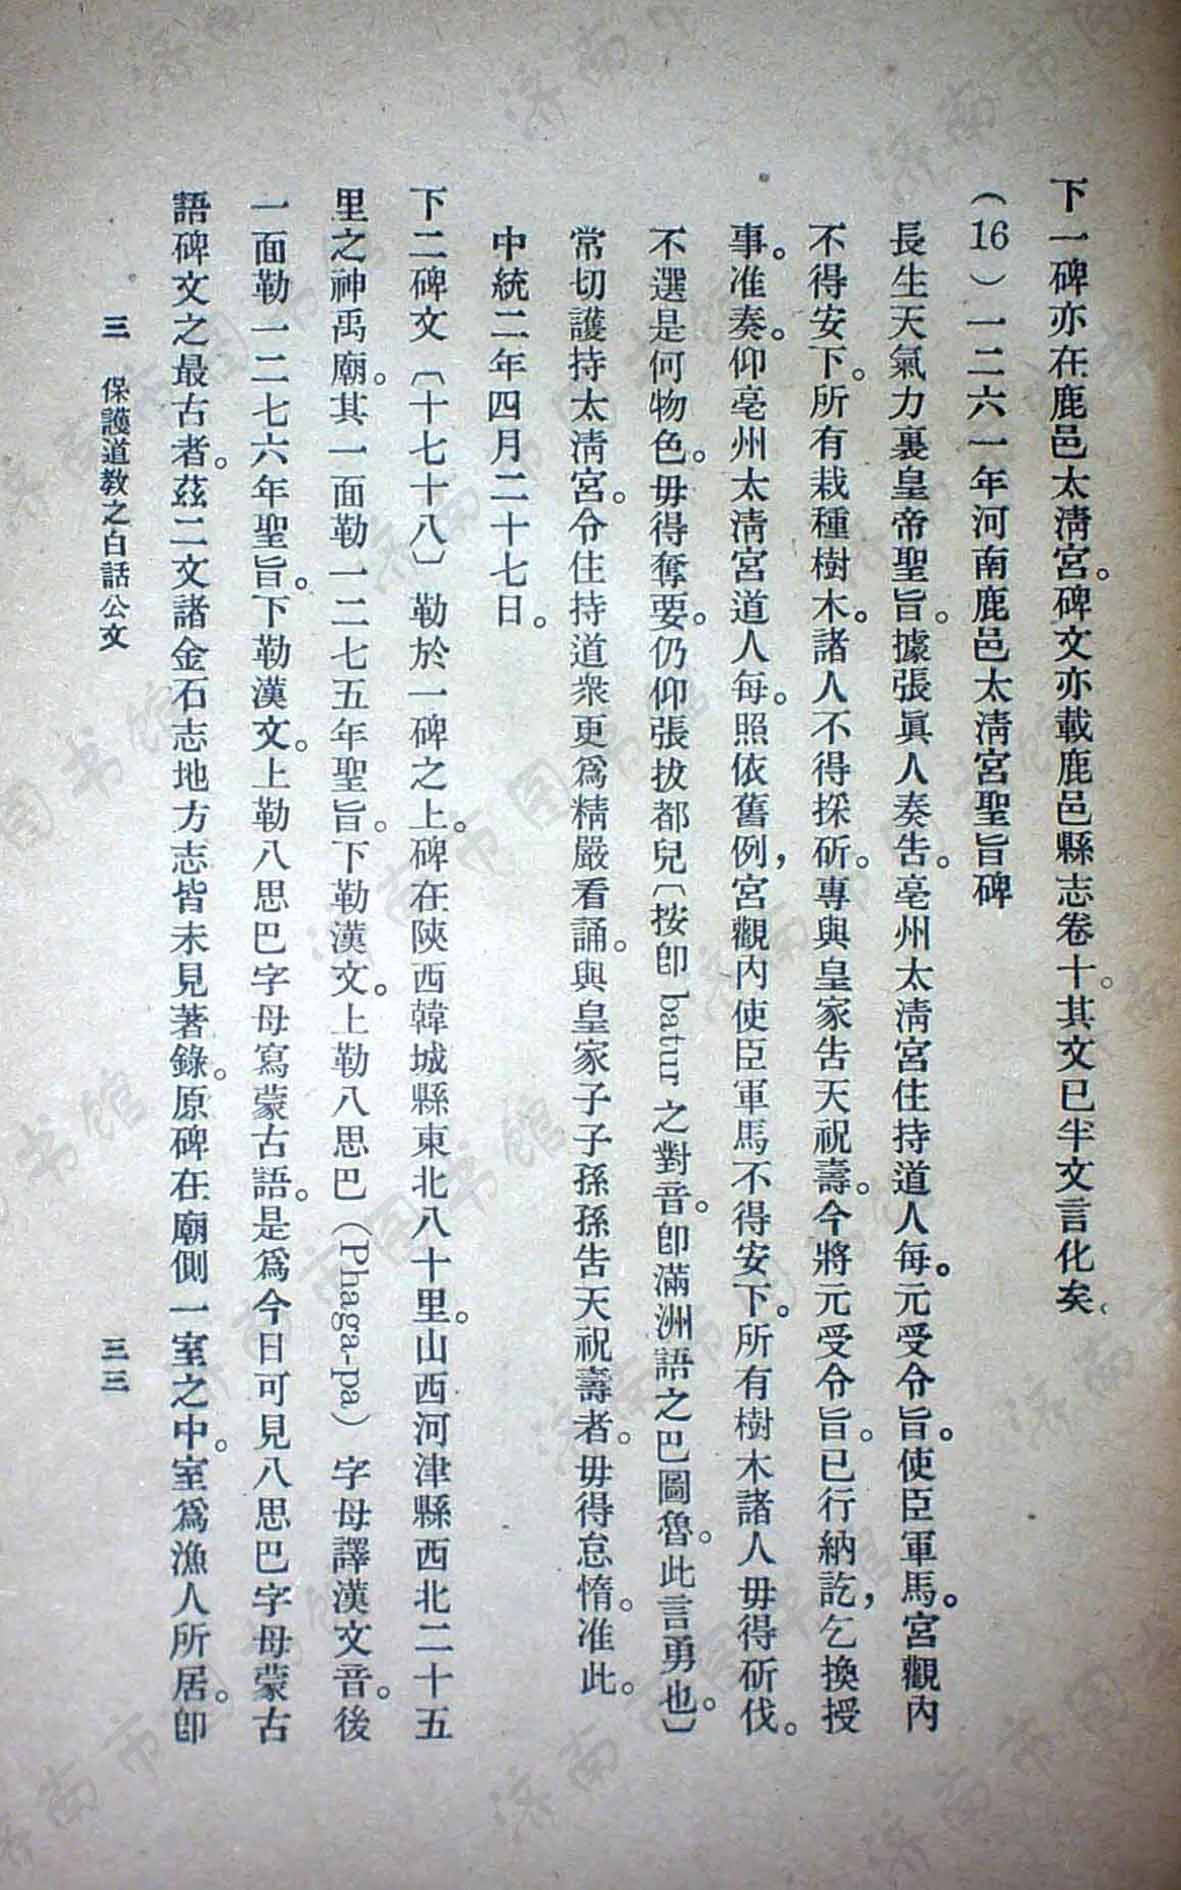 下一碑亦在鹿邑太淸宮。碑文亦載鹿邑縣志卷十。其文已半文言化矣。
（16）一二六一年河南鹿邑太淸宮聖旨碑
長生天氣力裏皇帝聖旨。據張眞人奏吿。亳州太淸宮住持道人每。元受令旨。使臣軍馬。宮觀內
不得安下。所有栽種樹木。諸人不得採斫。專與皇家吿天祝壽。今將元受令旨。已行納訖，乞換授
事。准奏。仰亳州太淸宮道人每。照依舊例，宮觀內使臣軍馬不得安下。所有樹木諸人毋得斫伐。
不選是何物色。毋得奪要。仍仰張拔都兒〔按卽batur之對音。卽滿洲語之巴圖魯。此言勇也。〕
常切護持太淸宮。令住持道衆更爲精嚴看誦。與皇家子子孫孫吿天祝壽者。毋得怠惰。准此。
中統二年四月二十七日。
下二碑文〔十七十八〕勒於一碑之上。碑在陝西韓城縣東北八十里。山西河津縣西北二十五
里之神禹廟。其一面勒一二七五年聖旨。下勒漢文。上勒八思巴（Phaga-pa）字母譯漢文音。後
一面勒一二七六年聖旨。下勒漢文。上勒八思巴字母寫蒙古語。是爲今日可見八思巴字母蒙古
語碑文之最古者。茲二文諸金石志地方志皆未見著錄。原碑在廟側一室之中。室爲漁人所居。卽
三 保護道敎之白話公文 三三
济南市图书馆